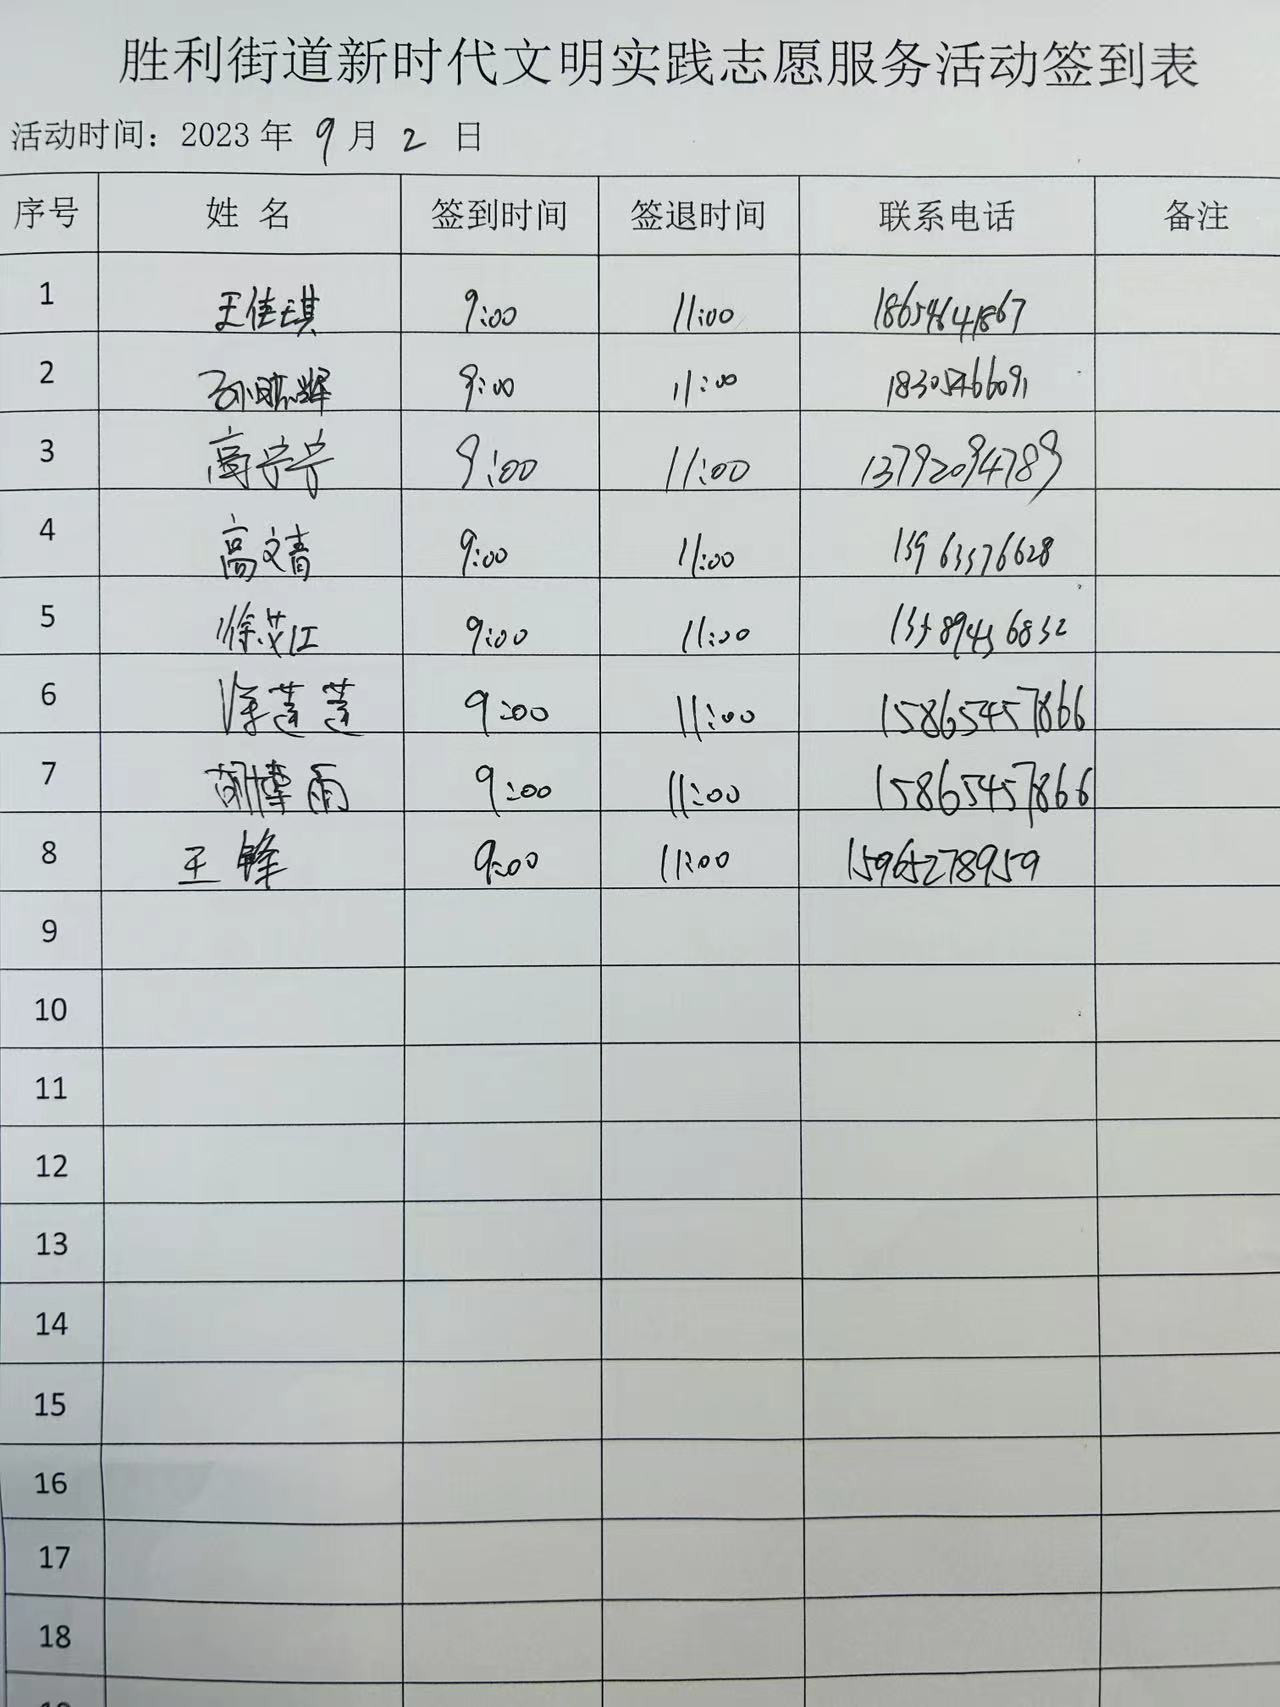 胜利街道新时代文明实践志愿服务活动签到表
活动时间：2023年 9 月 2 日
序号 姓 名 签到时间 签退时间 联系电话 备注
1 王佳琪 9:00 11:00 18654641867
2 孙晓辉 9:00 11:00 18305466091
3 高宁宁 9:00 11:00 13792094789
4 高文青 9:00 11:00 13963376628
5 徐艾江 9:00 11:00
6 徐莲莲 9:00 11:00 15865457866
7 胡博雨 9:00 11:00 15865457866
8 王锋 9:00 11:00 15965278959
9
10
11
12
13
14
15
16
17
18